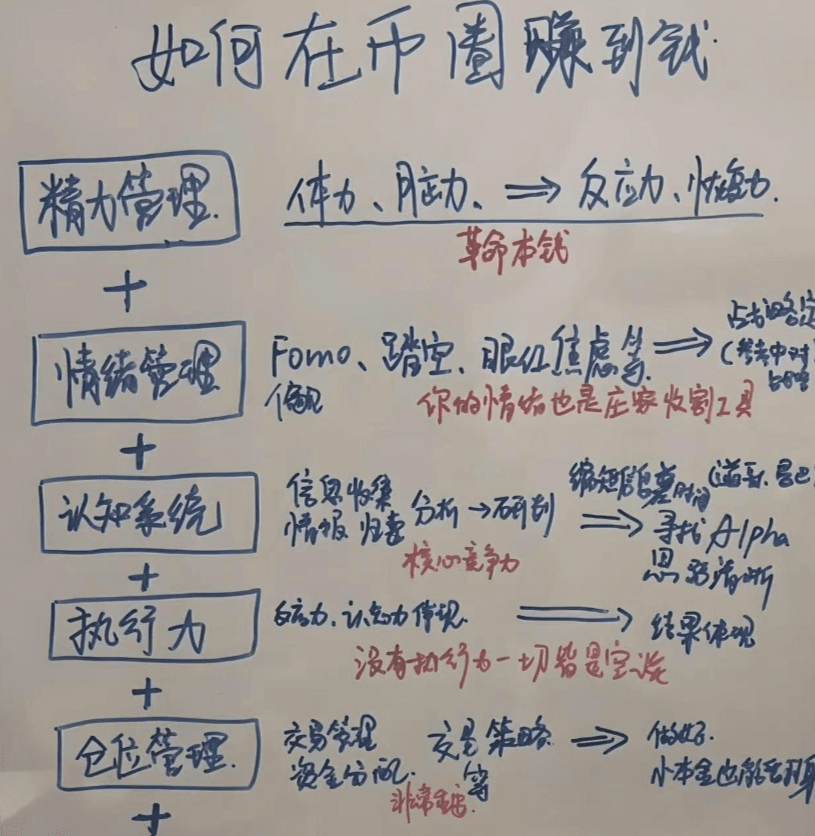 如何在币圈赚到钱
精力管理. 体力、脑力、⇒ 反应力、恢复力.
革命本钱
+
情绪管理 Fomo、踏空、眼红焦虑等 ⇒
偏见
你的情绪也是庄家收割工具
+
认知系统 信息收集 分析→研判 ⇒ 寻找Alpha
情报归集 缩短信息差时间
核心竞争力 思路清晰
+
执行力 反应力、认知力体现. ⇒ 结果体现
没有执行力一切皆是空谈
+
仓位管理. 交易管理 交易策略 ⇒ 做好.
资金分配. 等 小本金也能
非常重要.
+